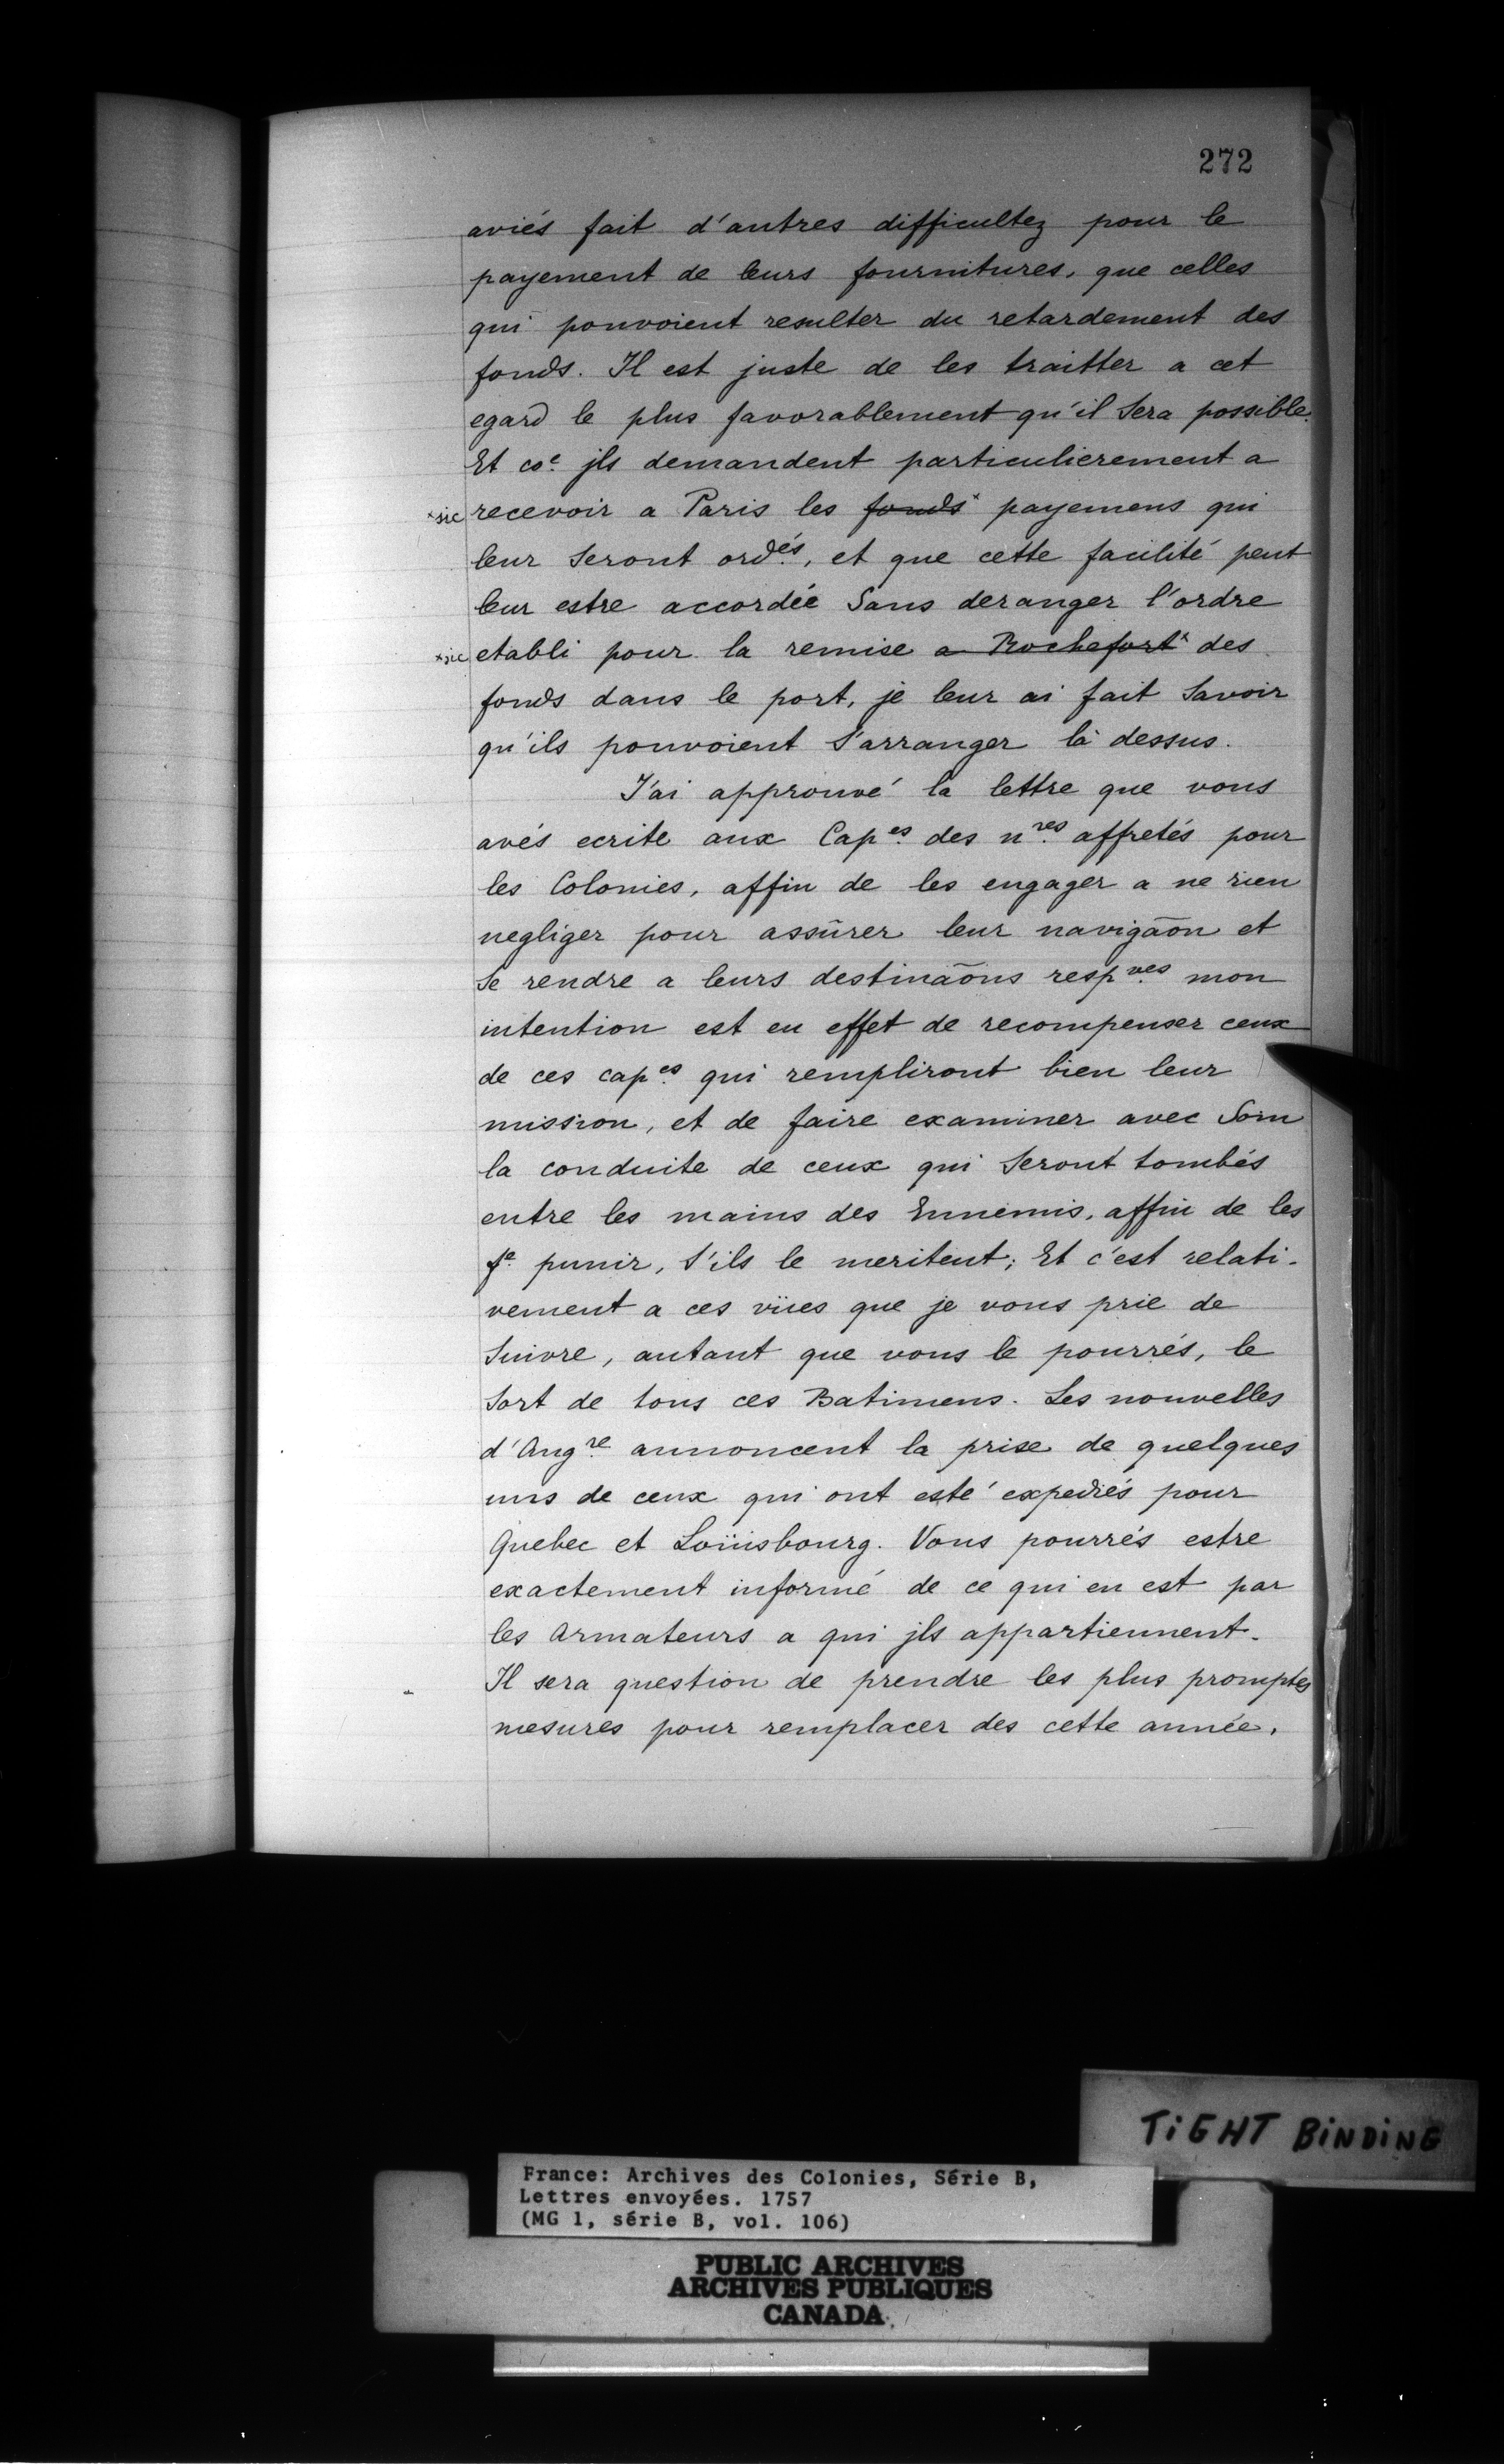 272
aviés fait d'autres difficultez pour le
payement de leurs fournitures, que celles
qui pouvoient resulter du retardement des
fonds. Il est juste de les traitter a cet
egard le plus favorablement qu'il Sera possible.
Et coe. jls demandent particulierement a
xsic recevoir a Paris les fondsx payemens qui
leur Seront ordés., et que cette facilité peut
leur estre accordée Sans deranger l'ordre
xsic etabli pour la remise a Rochefortx des
fonds dans le port, je leur ai fait Savoir
qu'ils pouvoient S'arranger là dessus.
J'ai approuvé la lettre que vous
avés ecrite aux Capes. des nres. affretés pour
les Colonies, affin de les engager a ne rien
negliger pour assûrer leur navigaõn et
Se rendre a leurs destinaõns respves. mon
intention est en effet de recompenser ceux
de ces capes. qui rempliront bien leur
mission, et de faire examiner avec Soin
la conduite de ceux qui Seront tombés
entre les mains des Ennemis, affin de les
fe. punir, S'ils le meritent; Et c'est relati-
vement a ces vües que je vous prie de
Suivre, autant que vous le pourrés, le
Sort de tous ces Batimens. Les nouvelles
d'Angre. annoncent la prise de quelques
uns de ceux qui ont esté expediés pour
Quebec et Loüisbourg. Vous pourrés estre
exactement informé de ce qui en est par
les armateurs a qui jls appartiennent.
Il sera question de prendre les plus promptes
mesures pour remplacer des cette année,
TiGHT BiNDiNG
France: Archives des Colonies, Série B,
Lettres envoyées. 1757
(MG 1, série B, vol. 106)
PUBLIC ARCHIVES
ARCHIVES PUBLIQUES
CANADA